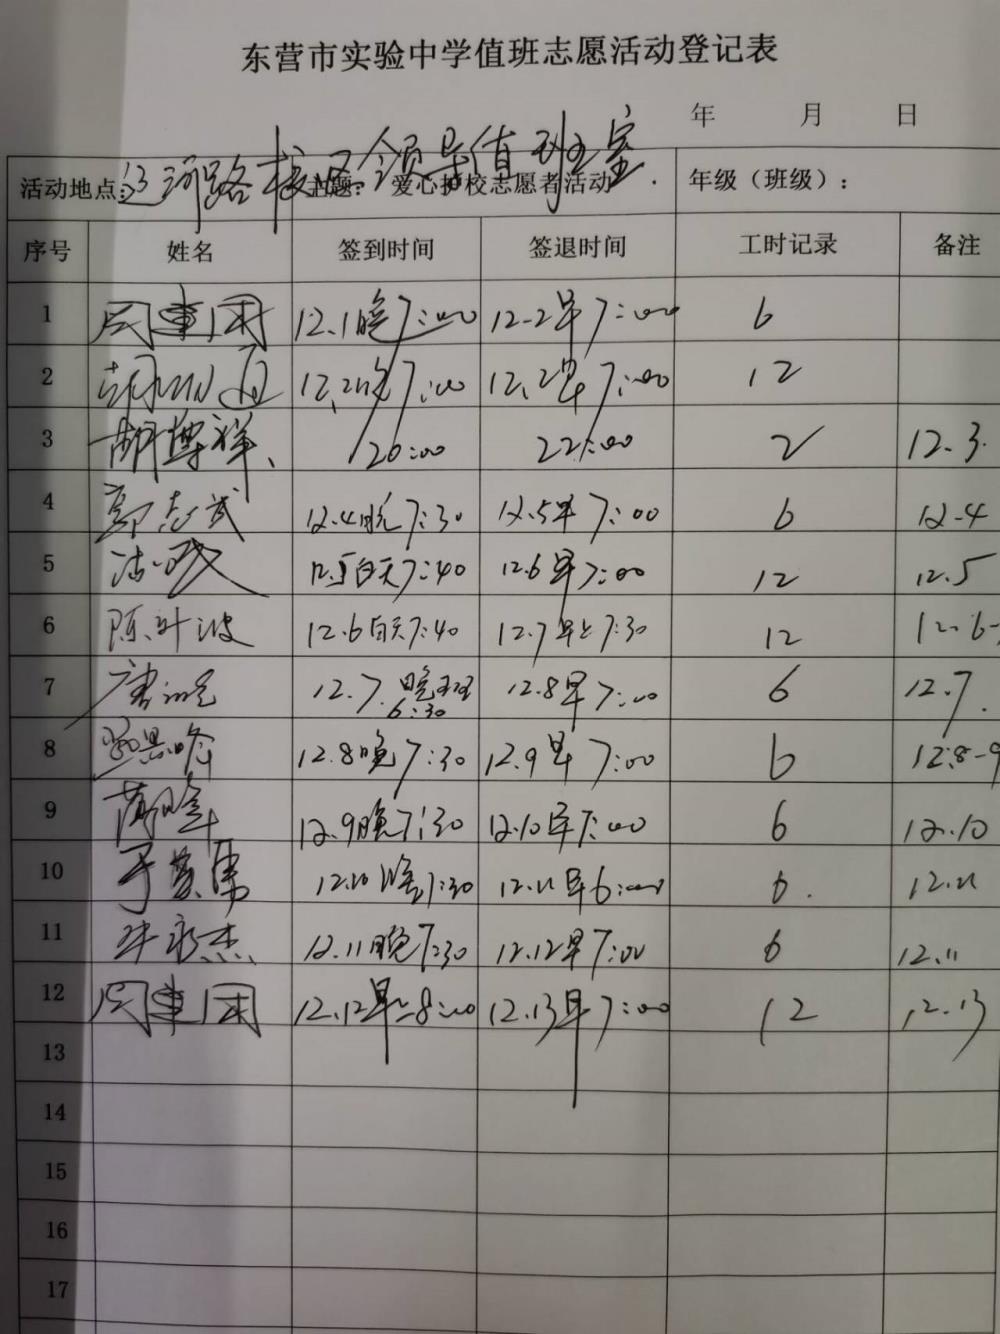 东营市实验中学值班志愿活动登记表
年 月 日
活动地点: 运河路校区领导值班室 主题: 爱心护校志愿者活动 年级（班级）:
序号 姓名 签到时间 签退时间 工时记录 备注
1 12.1晚7:00 12.2早7:00 6
2 12.2晚7:00 12.2早7:00 12
3 胡博祥 20:00 22:00 2 12.3
4 郭志武 12.4晚7:30 12.5早7:00 6 12.4
5 12.5白天7:40 12.6早7:00 12 12.5
6 陈叶波 12.6白天7:40 12.7早上7:30 12 12.6
7 12.7.晚班6:30 12.8早7:00 6 12.7.
8 12.8晚7:30 12.9早7:00 6 12.8-9
9 12.9晚7:30 12.10早7:00 6 12.10
10 12.10晚7:30 12.11早6:00 6. 12.11
11 12.11晚7:30 12.12早7:00 6 12.11
12 12.12早8:00 12.13早7:00 12 12.13
13
14
15
16
17